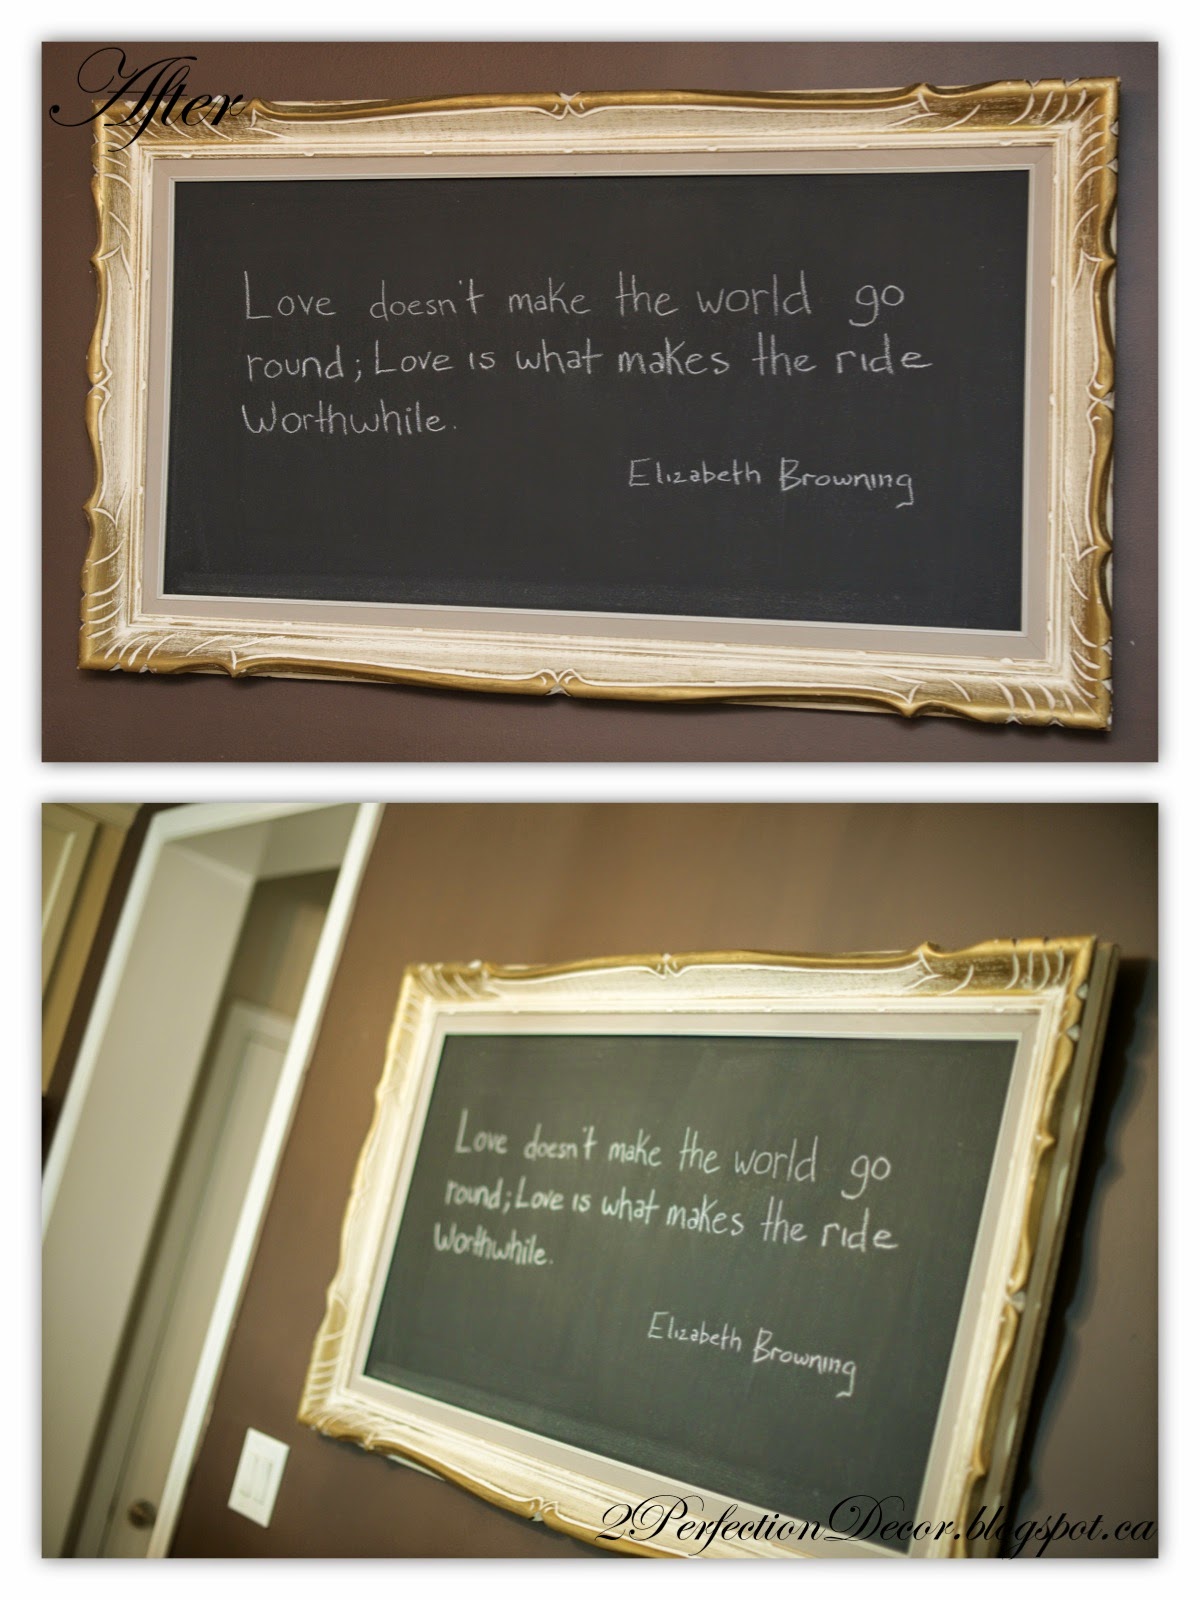 After
Love doesn't make the world go
round; Love is what makes the ride
Worthwhile.
Elizabeth Browning
Love doesn't make the world go
round; Love is what makes the ride
Worthwhile.
Elizabeth Browning
2PerfectionDecor.blogspot.ca